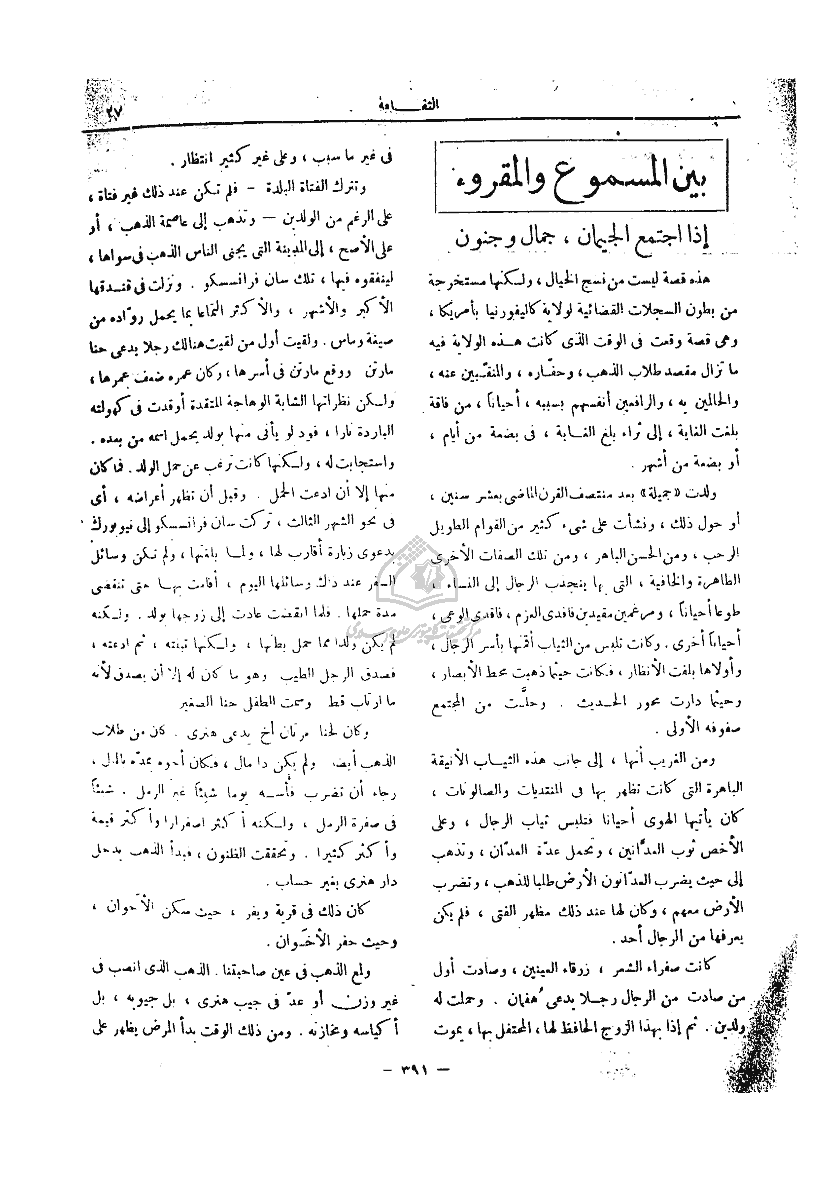 الثقافة
٢٧
بين المسموع والمقروء
إذا اجتمع الجيمان ، جمال وجنون
هذه قصة ليست من نسج الخيال ، ولكنها مستخرجة
من بطون السجلات القضائية لولاية كاليفورنيا بأمريكا ،
وهى قصة وقعت فى الوقت الذى كانت هذه الولاية فيه
ما تزال مقصد طلاب الذهب ، وحفّاره ، والمنقّبين عنه ،
والحالمين به ، والرافعين أنفسهم بسببه ، أحياناً ، من فاقة
بلغت الغاية ، إلى ثراء بلغ الغاية ، فى بضعة من أيام ،
أو بضعة من أشهر .
ولدت «جميلة» بعد منتصف القرن الماضى بعشر سنين ،
أو حول ذلك ، ونشأت على شىء كثير من القوام الطويل
الرحب ، ومن الحسن الباهر ، ومن تلك الصفات الأخرى
الظاهرة والخافية ، التى بها ينجذب الرجال إلى النساء ،
طوعا أحياناً ، ومرغمين مقيدين فاقدى العزم ، فاقدى الوعى ،
أحياناً أخرى . وكانت تلبس من الثياب أقمنها بأسر الرجال ،
وأولاها بلفت الأنظار ، فكانت حيثما ذهبت محط الأبصار ،
وحيثما دارت محور الحديث . وحلّت من المجتمع
صفوفه الأولى .
ومن الغريب أنها ، إلى جانب هذه الثياب الأنيقة
الباهرة التى كانت تظهر بها فى المنتديات والصالونات ،
كان يأتيها الهوى أحيانا فتلبس ثياب الرجال ، وعلى
الأخص ثوب المعدّانين ، وتحمل عدّة المعدّان ، وتذهب
إلى حيث يضرب المعدّانون الأرض طلبا للذهب ، وتضرب
الأرض معهم ، وكان لها عند ذلك مظهر الفتى ، فلم يكن
يعرفها من الرجال أحد .
كانت صفراء الشعر ، زرقاء العينين ، وصادت أول
من صادت من الرجال رجلا يدعى هفمان . وحملت له
ولدين . ثم إذا بهذا الزوج الحافظ لها ، المحتفل بها ، يموت
فى غير ما سبب ، وعلى غير كثير انتظار .
وتترك الفتاة البلدة – فلم تكن عند ذلك غير فتاة ،
على الرغم من الولدين — وتذهب إلى عاصمة الذهب ، أو
على الأصح ، إلى المدينة التى يجنى الناس الذهب فى سواها ،
لينفقوه فيها ، تلك سان فرانسسكو . ونزلت فى فندقها
الأكبر والأشهر ، والأكثر التماعا بما يحمل روّاده من
صيغة وماس . ولقيت أول من لقيت هنالك رجلا يدعى حنا
مارتن ووقع مارتن فى أسرها ، وكان عمره ضعف عمرها ،
ولكن نظراتها الشابة الوهاجة المتقدة أوقدت فى كهولته
الباردة نارا ، فود لو يأتى منها بولد يحمل اسمه من بعده .
واستجابت له ، ولكنها كانت ترغب عن حمل الولد . فما كان
منها إلا أن ادعت الحمل . وقبل أن تظهر أعراضه ، أى
فى نحو الشهر الثالث ، تركت سان فرانسسكو إلى نيويورك
بدعوى زيارة أقارب لها ، ولما بلغتها ، ولم تكن وسائل
السفر عند ذلك وسائلها اليوم ، أقامت بها حتى تنقضى
مدة حملها . فلما انقضت عادت إلى زوجها بولد . ولكنه
لم يكن ولدا مما حمل بطنها ، ولكنها تبنته ، ثم ادعته ،
فصدق الرجل الطيب وهو ما كان له إلا أن يصدق لأنه
ما ارتاب قط وسمت الطفل حنا الصغير
وكان لحنا مرتان أخ يدعى هنرى . كان من طلاب
الذهب أيضا ولم يكن ذا مال ، فكان أخوه يمدّه بالمال ،
رجاء أن تضرب فأسه يوما شيئا غير الرمل . شيئاً
فى صفرة الرمل ، ولكنه أكثر اصفرارا وأكثر قيمة
وأكثر كثيرا . وتحققت الظنون ، فبدأ الذهب يدخل
دار هنرى بغير حساب .
كان ذلك فى قرية ويفر ، حيث سكن الأخوان ،
وحيث حفر الأخوان .
ولمع الذهب فى عين صاحبتنا . الذهب الذى انصب فى
غير وزن أو عدّ فى جيب هنرى ، بل جيوبه ، بل
أكياسه ومخازنه . ومن ذلك الوقت بدأ المرض يظهر على
— ٣٩١ —